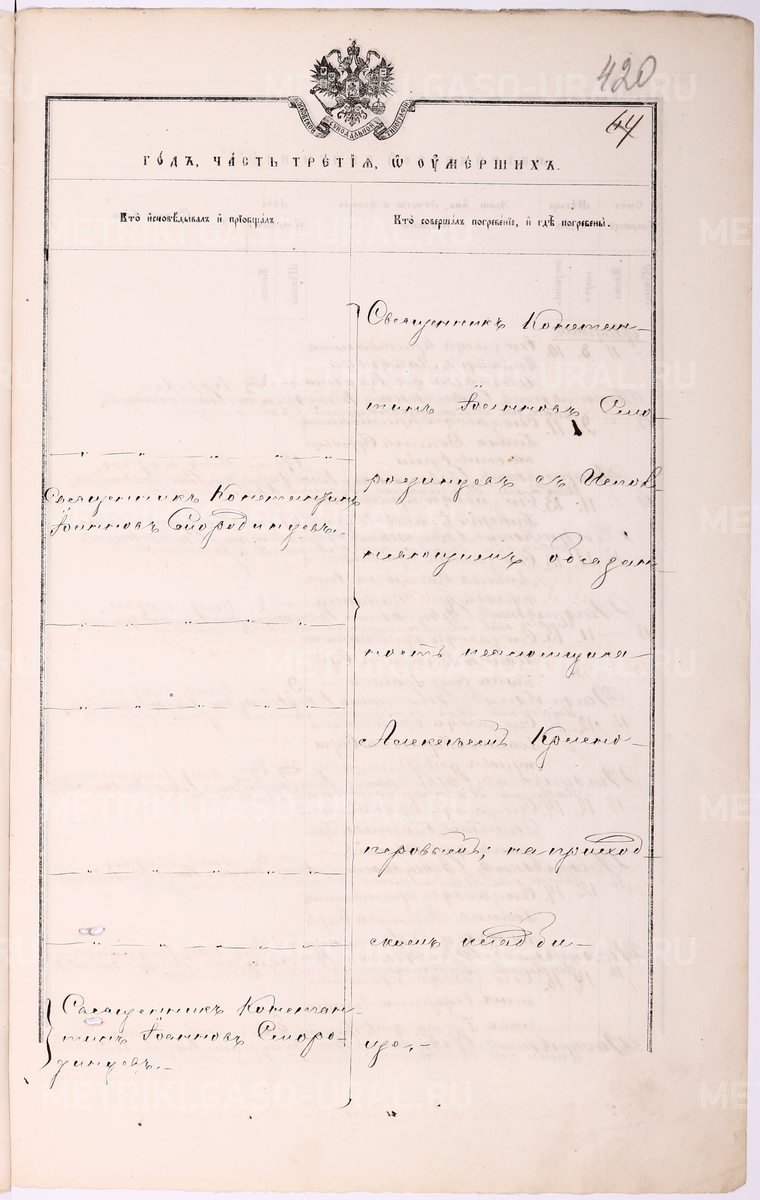 420
44
МОСКОВСКОЙ СѴНОДАЛЬНОЙ ТИПОГРАФІИ
ГО́ДЪ, ЧА́СТЬ ТРЕ́ТІѦ, Ѡ ОУ҆МЕ́РШИХЪ.
Кто̀ и҆сповѣ́дывалъ и҆ прїѡбща́лъ.
Кто̀ соверша́лъ погребе́нїе, и҆ гдѣ̀ погребены̀.
— " — " — " — " —
Священникъ Константинъ
Іоанновъ Смородинцевъ.
— " — " — " — " —
— " — " — " — " —
— " — " — " — " —
— " — " — " — " —
Священникъ Констан-
тинъ Іоанновъ Сморо-
динцевъ.–
Священникъ Констан-
тинъ Іоанновъ Смо-
родинцевъ съ Испол-
няющимъ обязан-
ность псаломщика
Алексѣемъ
на приход-
скомъ кладби-
ще.–
METRIKI.GASO-URAL.RU